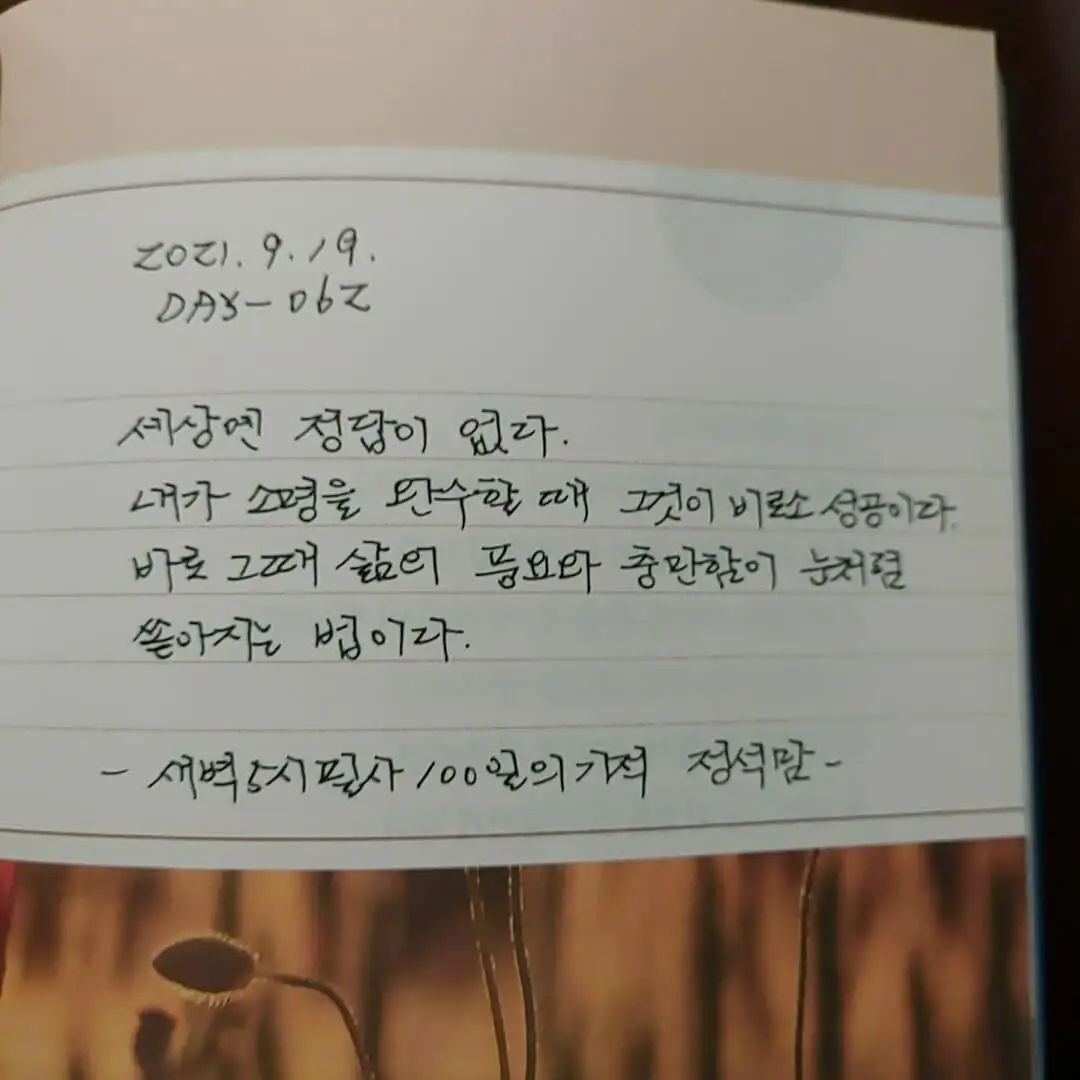 2021. 9. 19.
DAY-062
세상엔 정답이 없다.
내가 소명을 완수할 때 그것이 비로소 성공이다.
바로 그때 삶의 풍요와 충만함이 눈처럼
쏟아지는 법이다.
- 새벽5시필사 100일의기적 정석맘 -